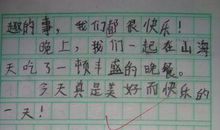 趣的事，我们都很快乐！
晚上，我们一起在山海
天吃了一顿丰盛的晚餐。
今天真是美好而快乐的
一天！